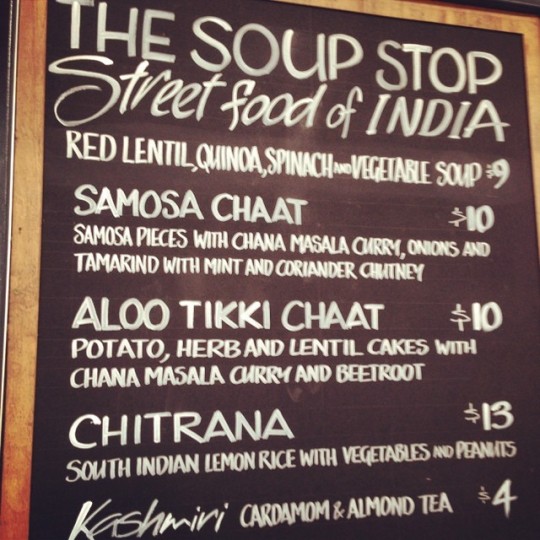 THE SOUP STOP
Street food of INDIA
RED LENTIL, QUINOA, SPINACH AND VEGETABLE SOUP $9
SAMOSA CHAAT $10
SAMOSA PIECES WITH CHANA MASALA CURRY, ONIONS AND
TAMARIND WITH MINT AND CORIANDER CHUTNEY
ALOO TIKKI CHAAT $10
POTATO, HERB AND LENTIL CAKES WITH
CHANA MASALA CURRY AND BEETROOT
CHITRANA $13
SOUTH INDIAN LEMON RICE WITH VEGETABLES AND PEANUTS
Kashmiri CARDAMOM & ALMOND TEA $4